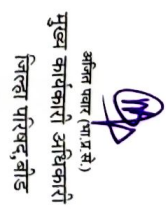 अजित पवार (भा.प्र.से)
मुख्य कार्यकारी अधिकारी
जिल्हा परिषद,बीड